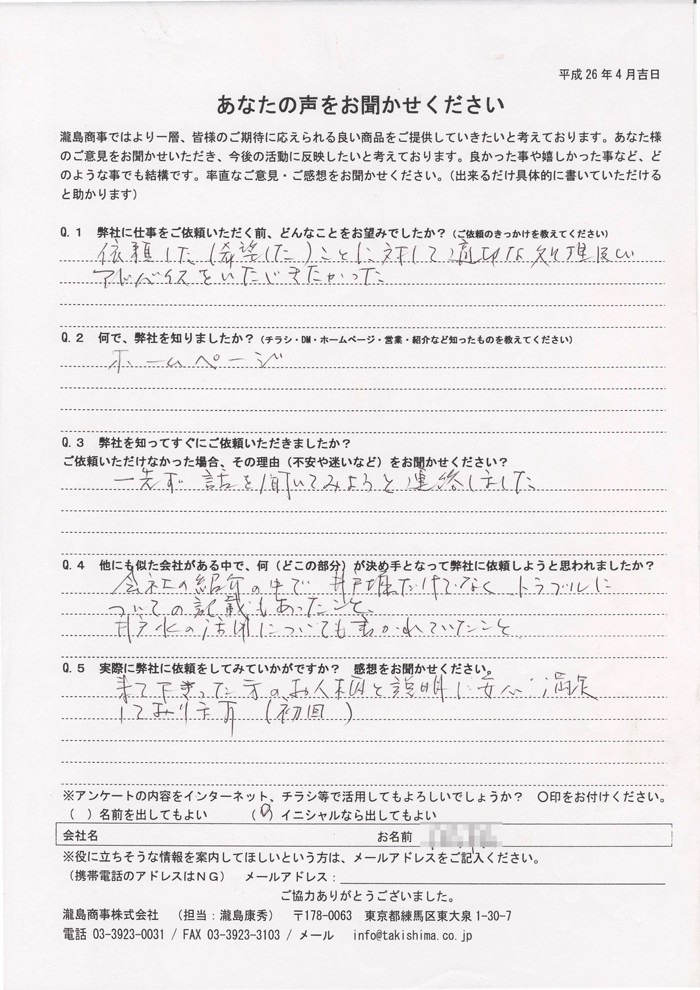 平成26年4月吉日
あなたの声をお聞かせください
瀧島商事ではより一層、皆様のご期待に応えられる良い商品をご提供していきたいと考えております。あなた様
のご意見をお聞かせいただき、今後の活動に反映したいと考えております。良かった事や嬉しかった事など、ど
のような事でも結構です。率直なご意見・ご感想をお聞かせください。(出来るだけ具体的に書いていただける
と助かります)
Q.1 弊社に仕事をご依頼いただく前、どんなことをお望みでしたか?(ご依頼のきっかけを教えてください)
依頼した(希望した)ことに対して適切な処理及び
アドバイスをいただきたかった
Q.2 何で、弊社を知りましたか?(チラシ・DM・ホームページ・営業・紹介など知ったものを教えてください)
ホームページ
Q.3 弊社を知ってすぐにご依頼いただきましたか?
ご依頼いただけなかった場合、その理由(不安や迷いなど)をお聞かせください?
一先ず話を聞いてみようと連絡しました
Q.4 他にも似た会社がある中で、何(どこの部分)が決め手となって弊社に依頼しようと思われましたか?
会社の紹介の中で井戸堀だけでなくトラブルに
ついての記載もあったこと、
井戸水の活用についても書かれていたこと
Q.5 実際に弊社に依頼をしてみていかがですか? 感想をお聞かせください。
来て下さった方のお人柄と説明に安心 満足
しております (初回)
※アンケートの内容をインターネット、チラシ等で活用してもよろしいでしょうか? 〇印をお付けください。
( )名前を出してもよい (〇)イニシャルなら出してもよい
会社名 お名前
※役に立ちそうな情報を案内してほしいという方は、メールアドレスをご記入ください。
(携帯電話のアドレスはNG) メールアドレス:
ご協力ありがとうございました。
瀧島商事株式会社 (担当:瀧島康秀) 〒178-0063 東京都練馬区東大泉1-30-7
電話 03-3923-0031 / FAX 03-3923-3103 / メール info@takishima.co.jp